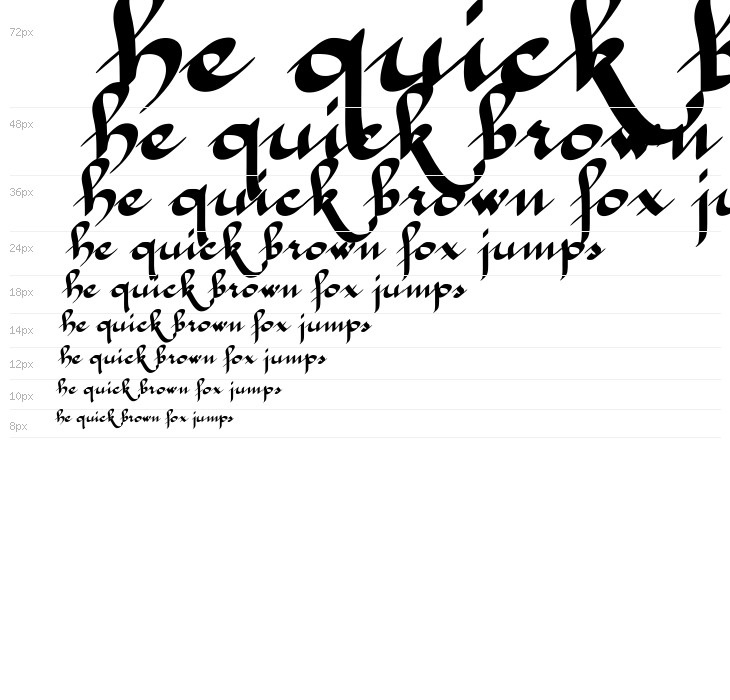 72px he quick b
48px he quick brown
36px he quick brown fox ju
24px he quick brown fox jumps
18px he quick brown fox jumps
14px he quick brown fox jumps
12px he quick brown fox jumps
10px he quick brown fox jumps
8px he quick brown fox jumps